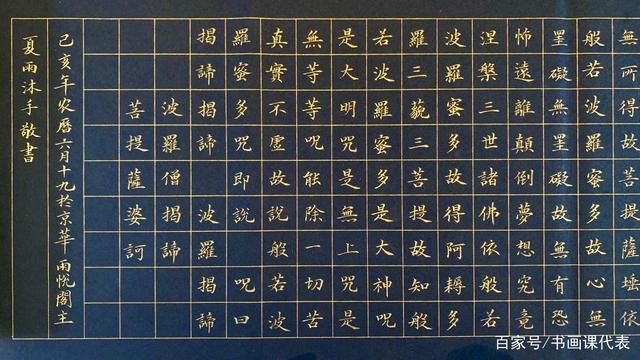 無所得故菩提薩埵依
般若波羅蜜多故心無
罣礙無罣礙故無有恐
怖遠離顛倒夢想究竟
涅槃三世諸佛依般若
波羅蜜多故得阿耨多
羅三藐三菩提故知般
若波羅蜜多是大神咒
是大明咒是無上咒是
無等等咒能除一切苦
真實不虛故說般若波
羅蜜多咒即說咒曰
揭諦揭諦波羅揭諦
波羅僧揭諦
菩提薩婆訶
己亥年农曆六月十九於京華雨悅閣主
夏雨沐手敬書
百家号/书画课代表